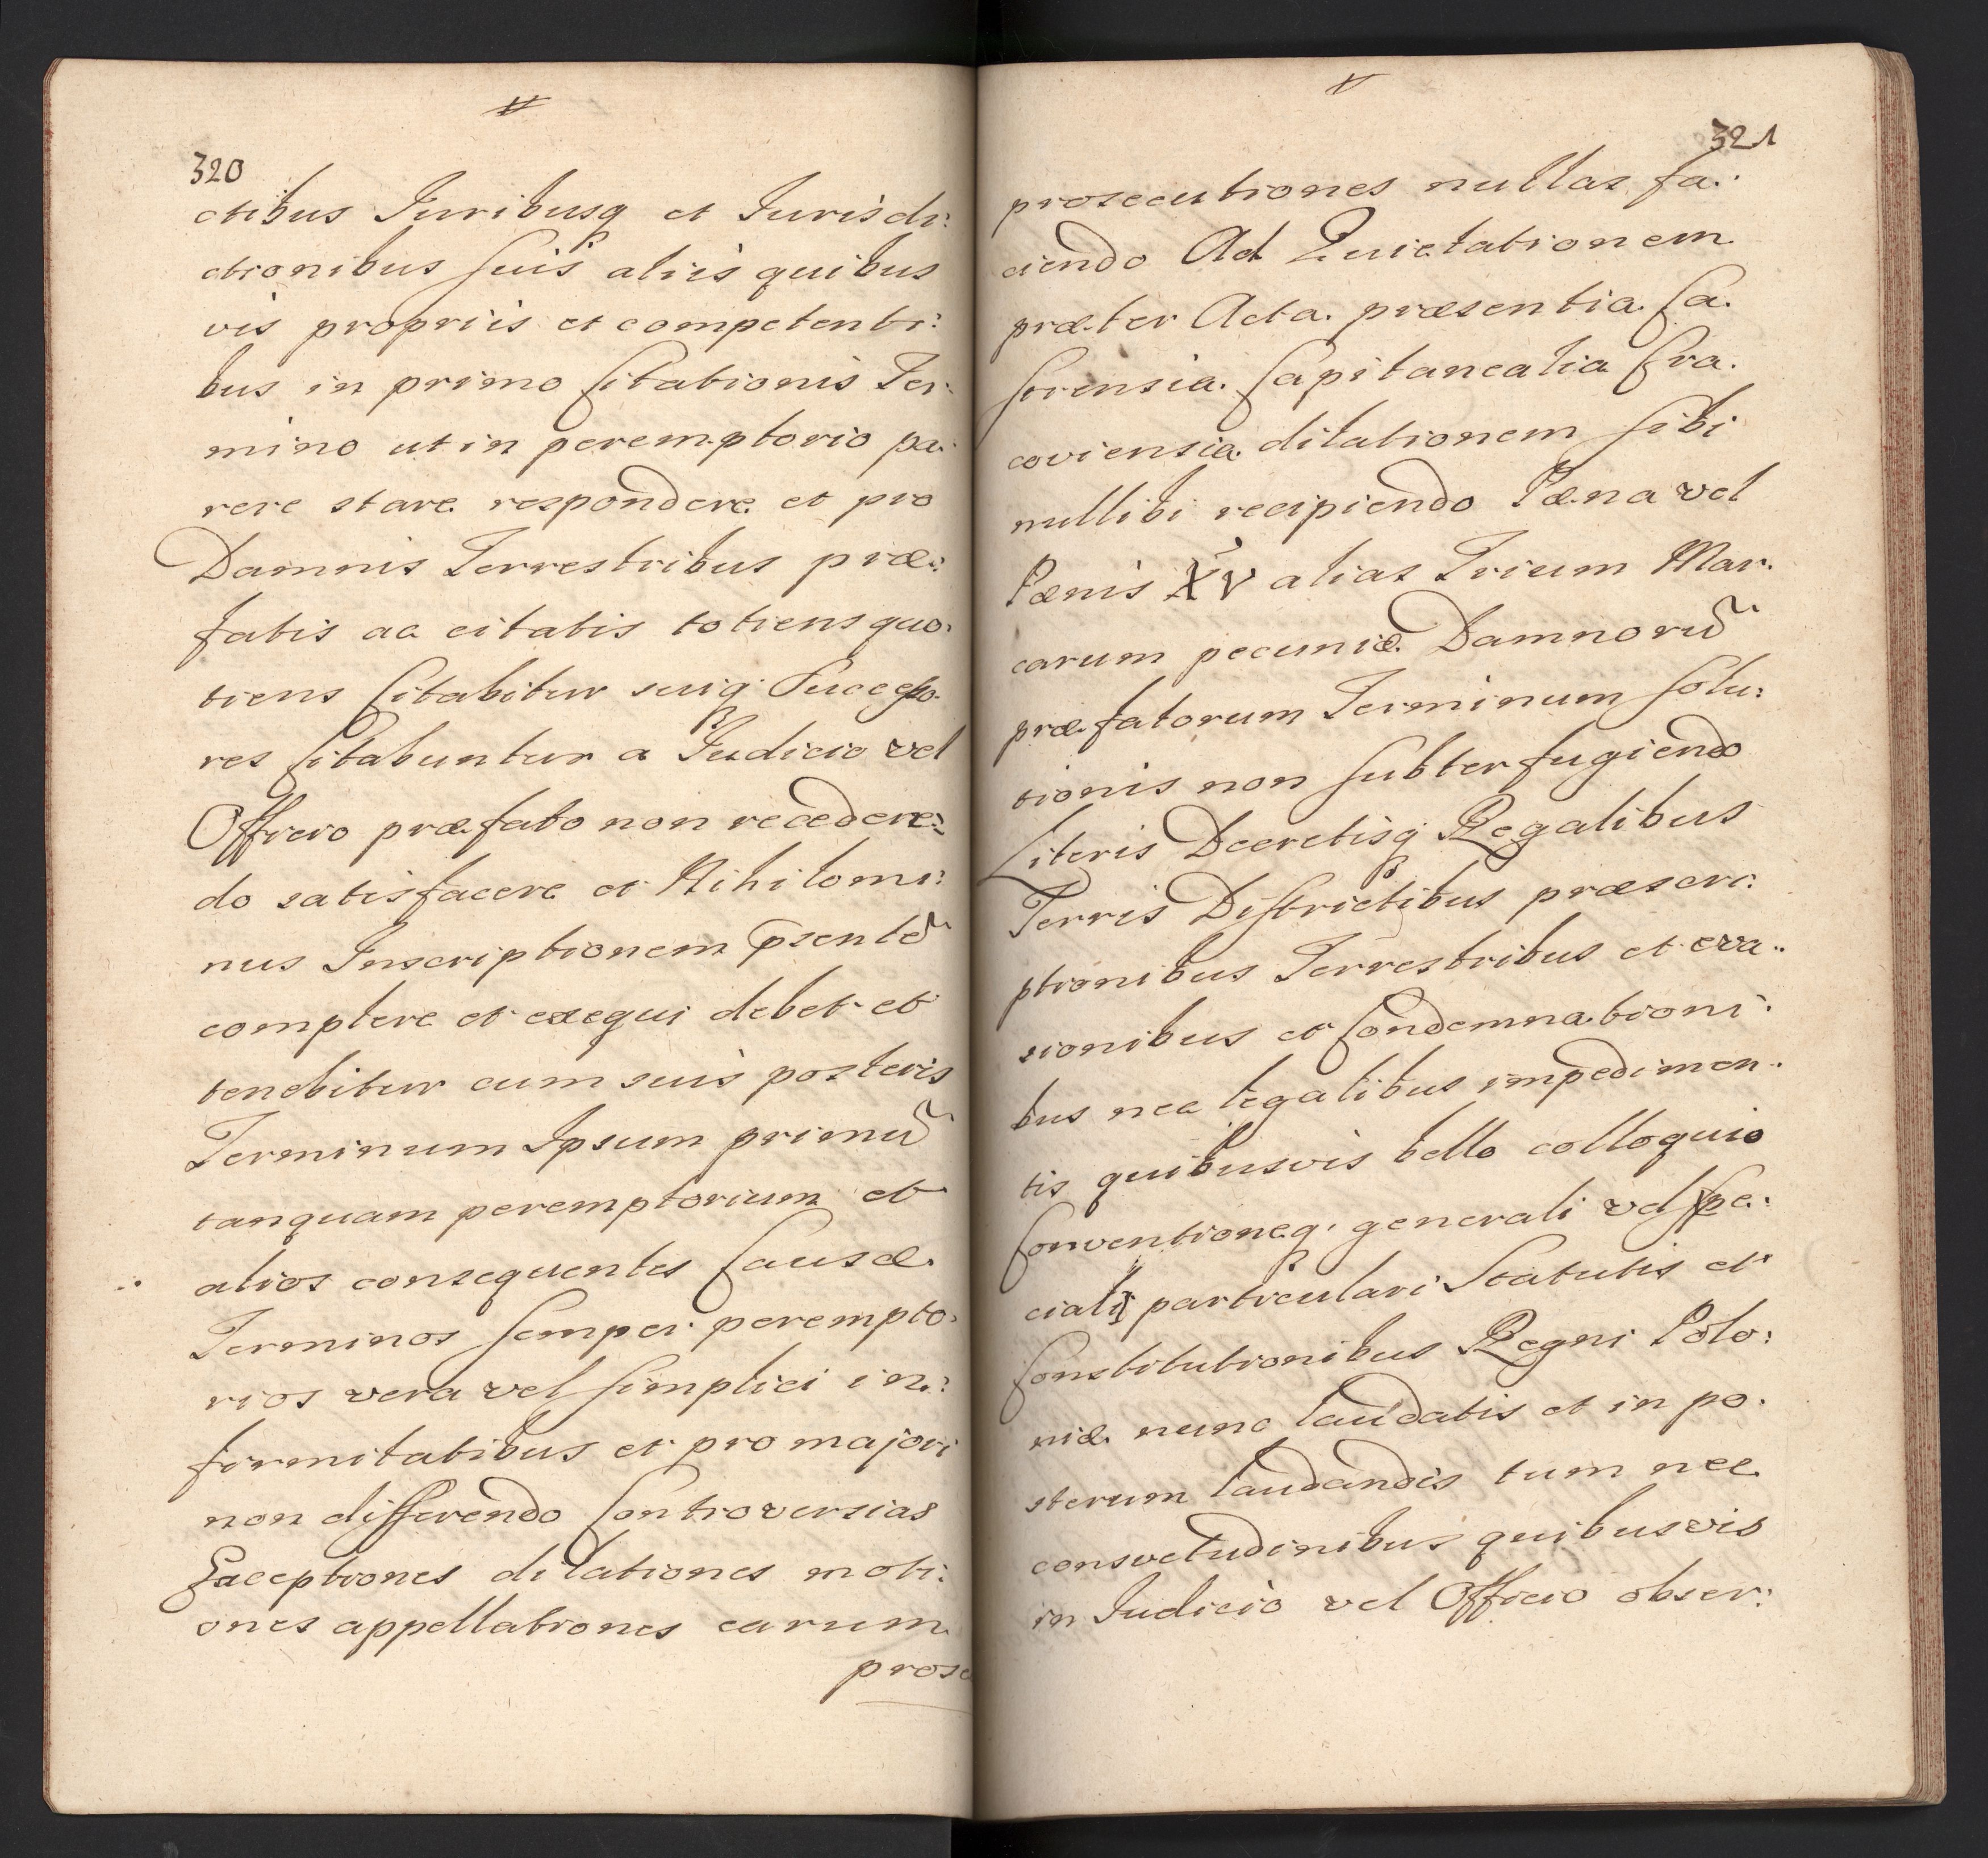 320
ctibus Juribusq et Jurisdi:
ctionibus suis aliis quibus
vis propriis et competenti:
bus in primo Citationis Ter:
mino ut in peremptorio pa:
rere stare respondere et pro
Damnis Terrestribus præ:
fatis ac citatis totiens quo:
tiens Citabitur suiq Successo
res Citabuntur a Judicio vel
Officio præfato non receden:
do satisfacere et Nihilomi:
nus Inscriptionem p̄sentē
complere et exequi debet et
tenebitur cum suis posteris
Terminum Ipsum primū
tanquam peremptorium et
alios consequentes Causæ
Terminos semper perempto:
rios vera vel simplici in:
firmitatibus et pro majori
non differendo Controversias
Exceptiones dilationes moti:
ones appellationes earum
prose
321
prosecutiones nullas fa:
ciendo Ad Quietationem
præter Acta præsentia Ca.
strensia Capitanealia Cra.
coviensia dilationem sibi
nullibi recipiendo Pæna vel
Pænis XV alias Trium Mar.
carum pecuniæ Damnorū
præfatorum Terminum solu:
tionis non subterfugiendo
Literis Decretisq Regalibus
Terris Districtibus præscri:
ptionibus Terrestribus et eva:
sionibus et Condemnationi:
bus nec legalibus impedimen:
tis quibusvis bello colloquio
Conventioneq generali vel spe:
ciali particulari Statutis et
Constitutionibus Regni Polo:
niæ nunc laudatis et in po:
sterum laudandis tum nec
consvetudinibus quibusvis
in Judicio vel Officio obser: